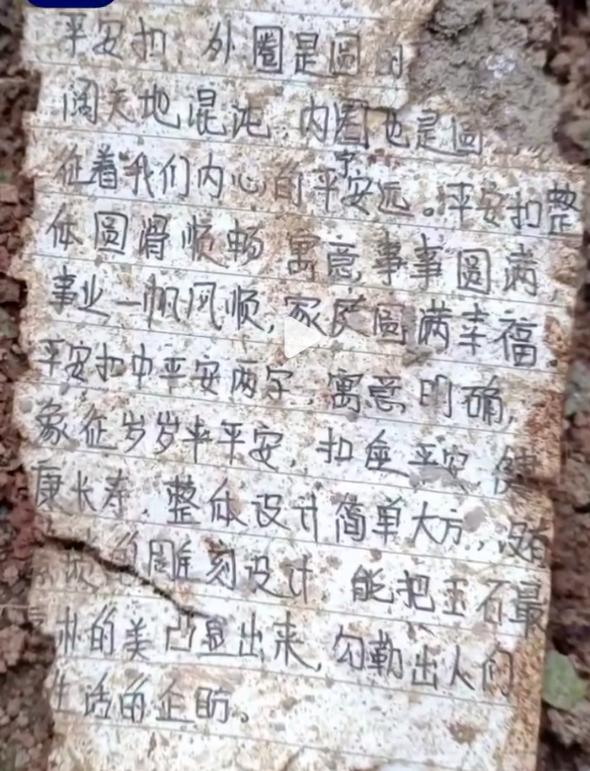 平安扣，外圈是圆的
阔天地混沌，内圈也是圆
征着我们内心的平安宁远。平安扣整
体圆滑顺畅，寓意事事圆满，
事业一帆风顺，家庭圆满幸福。
平安扣中平安两字，寓意明确，
象征岁岁平平安，扣座平安，健
康长寿，整体设计简单大方，没有
雕刻设计，能把玉石最
朴的美凸显出来，勾勒出人们
生活的企盼。